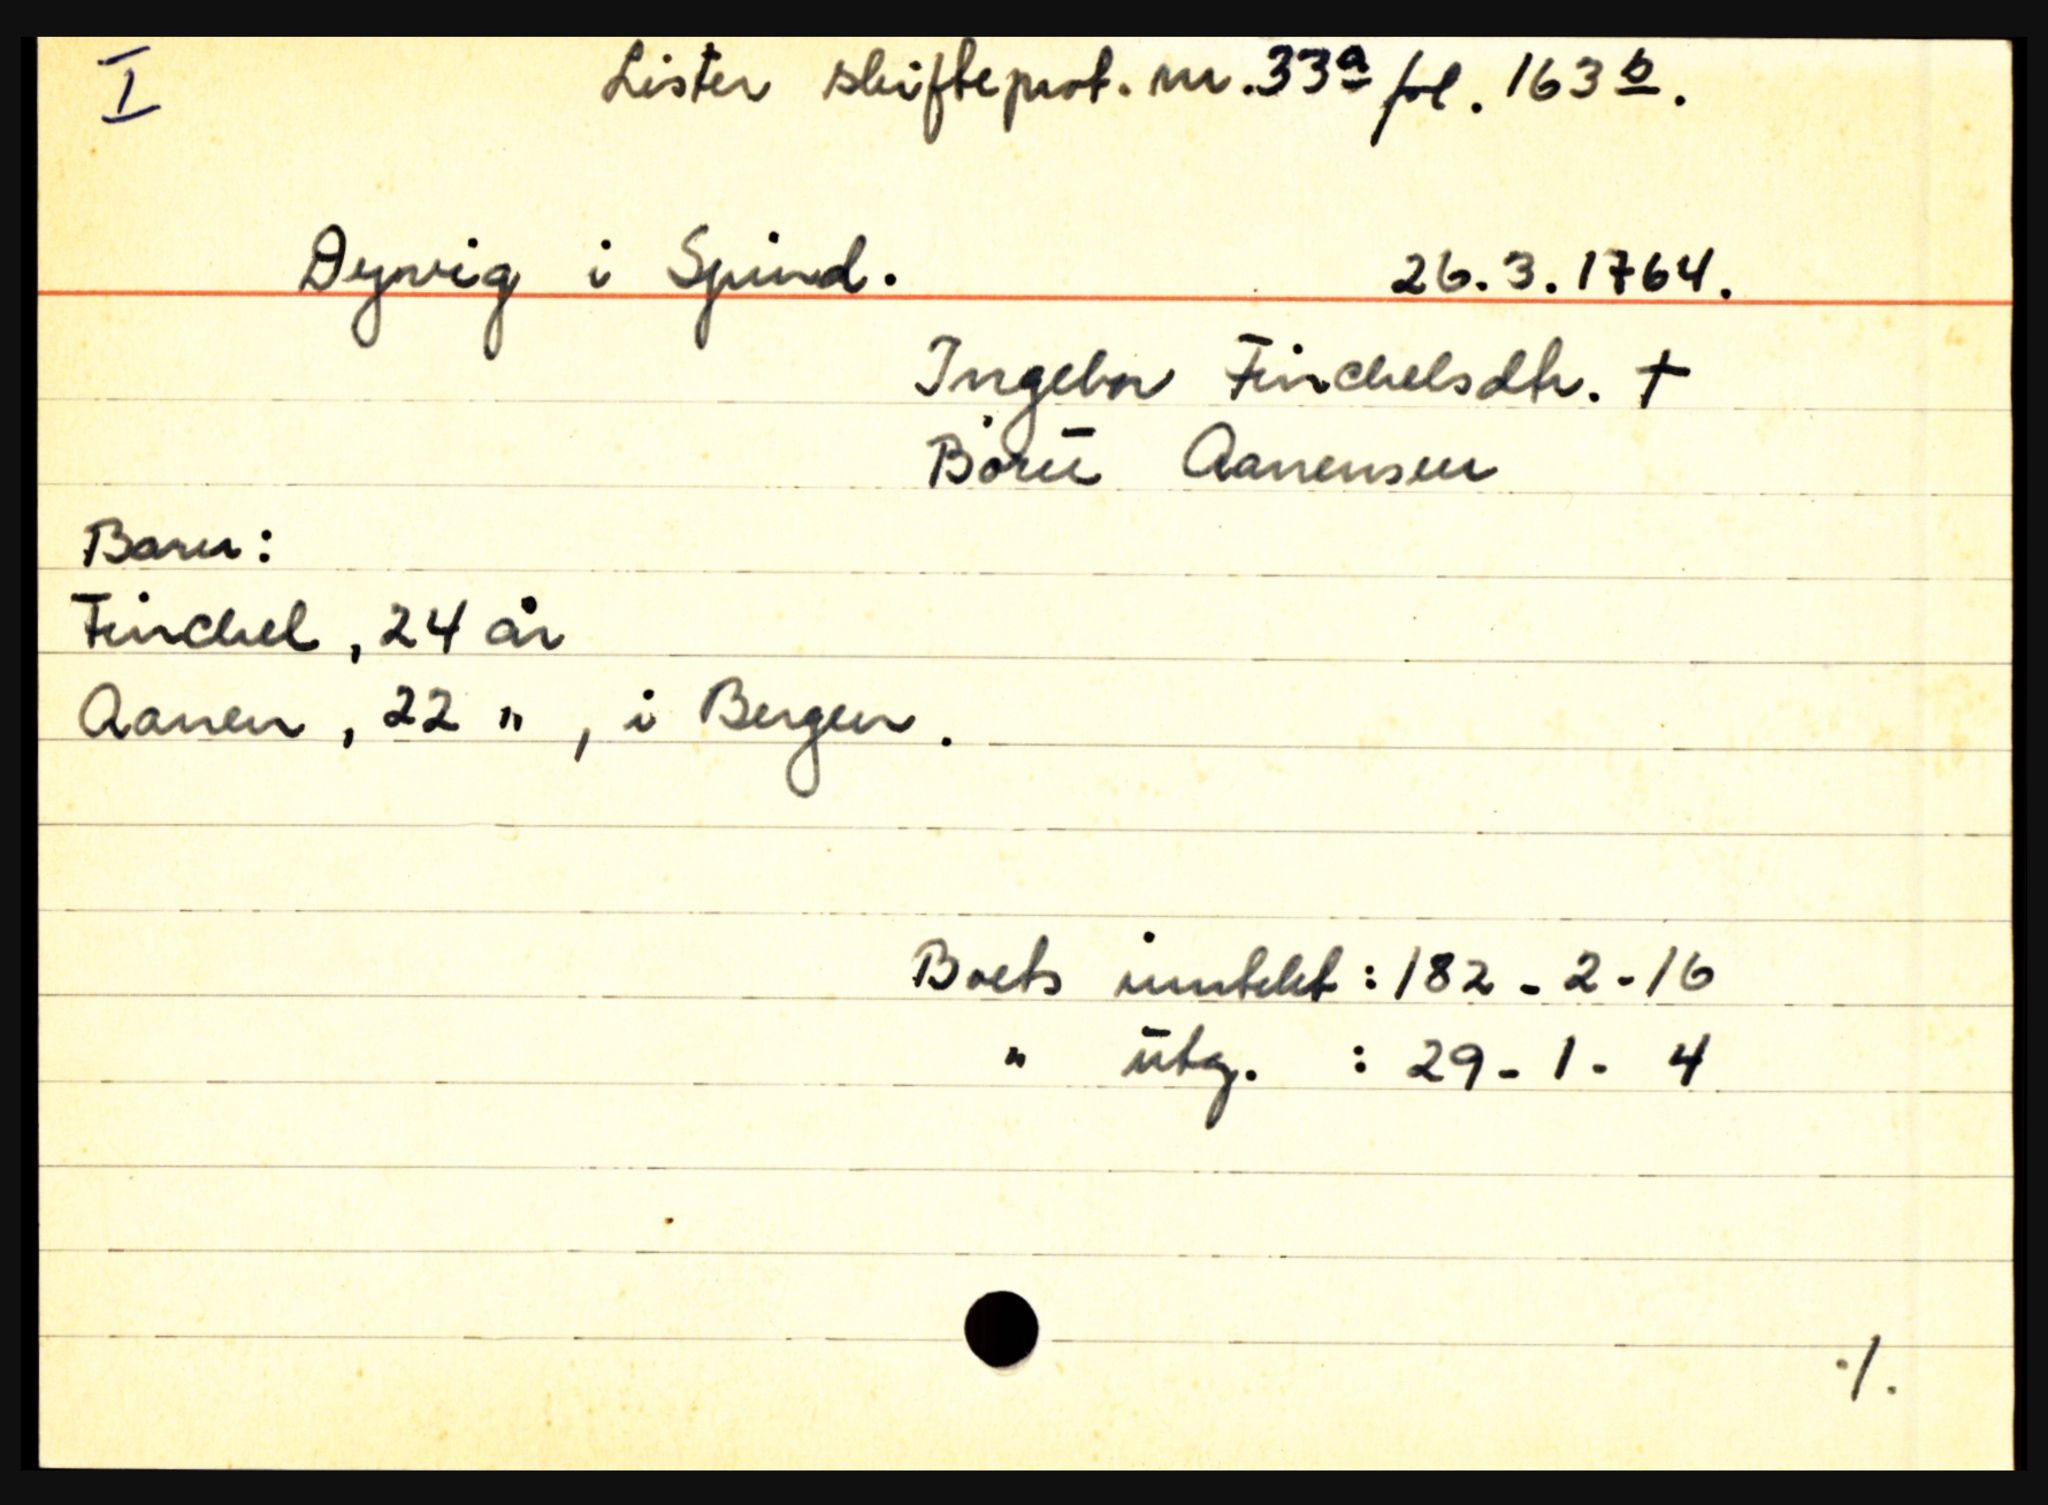 I
Lister skifteprot. nr. 33a fol. 163b.
Dyvvig i Spind. 26.3.1764.
Ingebor Finchelsdtr. †
Børu Aanensen
Barn:
Finchel, 24 år
Aanen, 22 ", i Bergen.
Boets inntekt: 182 - 2 - 16
" utg. : 29 - 1 - 4
./.